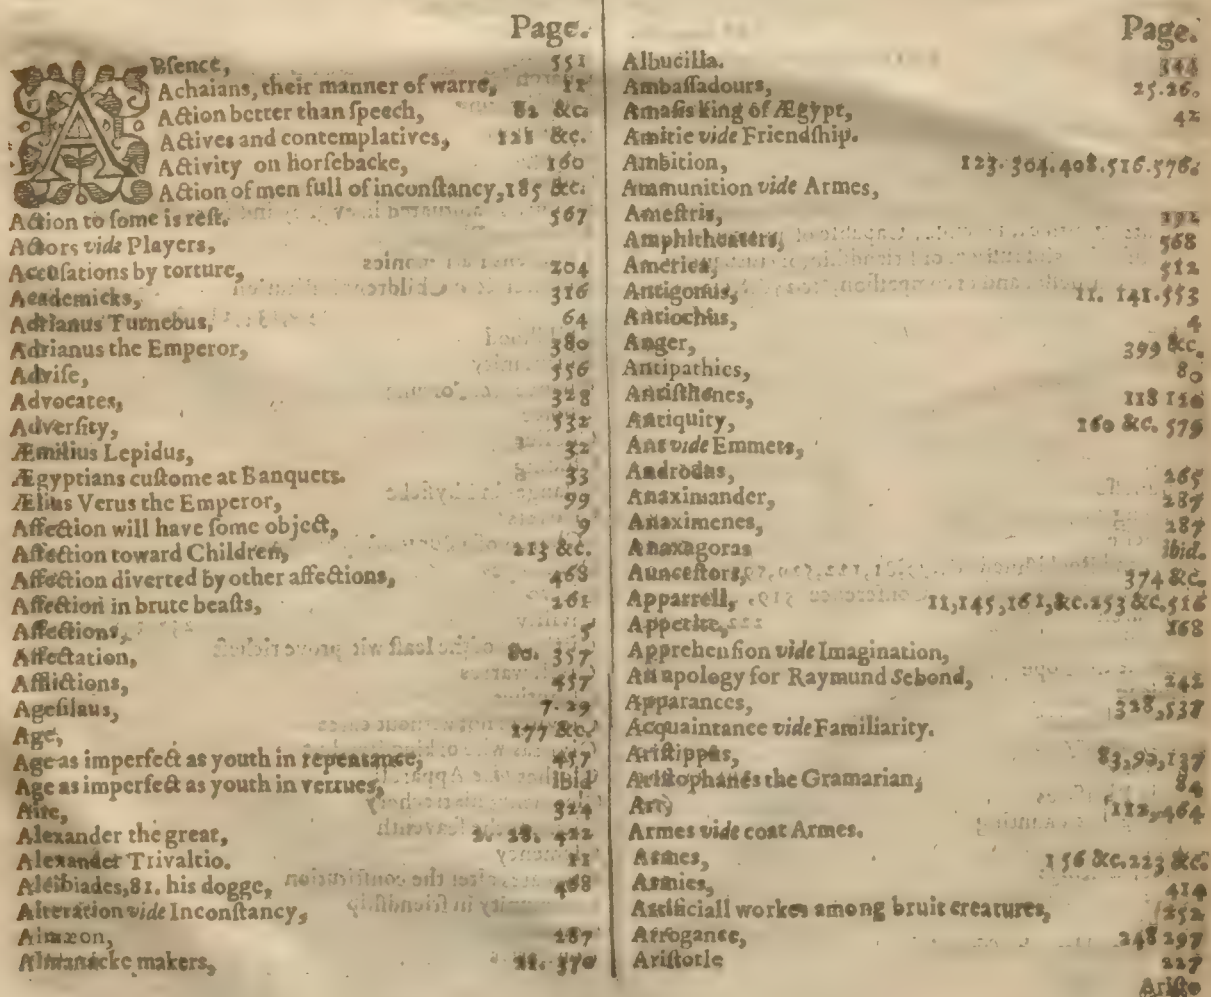 Page.
Absence, 551
Achaians, their manner of warre, 11
Action better than speech, 82 &c.
Actives and contemplatives, 128 &c.
Activity on horsebacke, 160
Action of men full of inconstancy, 185 &c.
Action to some is rest. 567
Actors vide Players,
Accusations by torture, 204
Academicks, 316
Adrianus Turnebus, 64
Adrianus the Emperor, 380
Advise, 556
Advocates, 328
Adversity, 532
Æmilius Lepidus, 32
Ægyptians custome at Banquets. 33
Ælius Verus the Emperor, 99
Affection will have some object, 9
Affection toward Children, 213 &c.
Affection diverted by other affections, 468
Affection in brute beasts, 261
Affections, 5
Affectation, 80. 357
Afflictions, 457
Agesilaus, 7. 29
Age, 177 &c.
Age as imperfect as youth in repentance, 457
Age as imperfect as youth in vertues, ibid
Aire, 324
Alexander the great, 2. 28. 422
Alexander Trivaltio. 11
Alcibiades, 81. his dogge, 468
Alteration vide Inconstancy,
Almæon, 287
Almanacke makers, 22. 370
Page.
Albucilla. 344
Ambassadours, 25. 26.
Amasis king of Ægypt, 42
Amitie vide Friendship.
Ambition, 123. 304. 408. 516. 576.
Ammunition vide Armes,
Amestris, 292
Amphitheaters, 568
America, 512
Antigonus, 11. 141. 553
Antiochus, 4
Anger, 399 &c.
Antipathies, 80
Antisthenes, 118 120
Antiquity, 160 &c. 579
Ant vide Emmets,
Androdus, 265
Anaximander, 287
Anaximenes, 287
Anaxagoras ibid.
Auncestors, 374 &c.
Apparrell, 11, 145, 161, &c. 253 &c. 516
Appetite, 168
Apprehension vide Imagination,
An apology for Raymund Sebond, 242
Apparances, 328, 537
Acquaintance vide Familiarity.
Aristippus, 83, 92, 137
Aristophanes the Gramarian, 84
Art, 112, 464
Armes vide coat Armes.
Armes, 156 &c. 223 &c.
Armies, 414
Artificiall workes among bruit creatures, 252
Arrogance, 248 297
Aristotle 227
Aristo